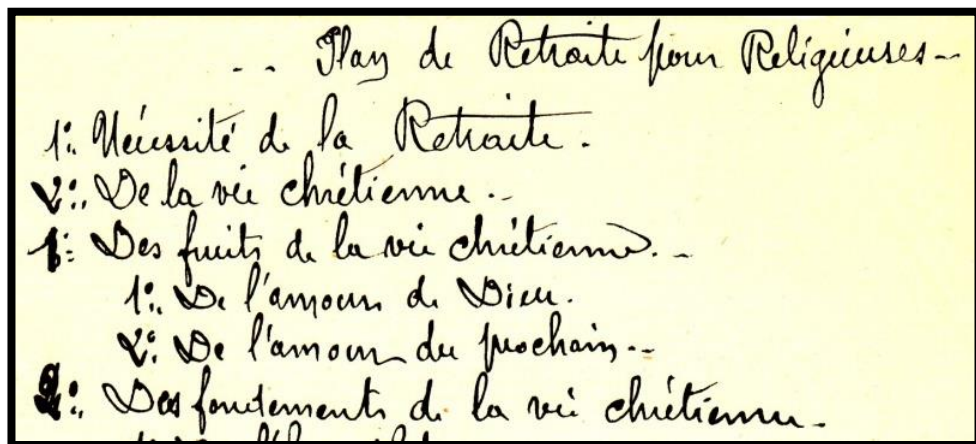 -- Plan de Retraite pour Religieuses -
1º: Nécessité de la Retraite.
2º: De la vie chrétienne.-
1º: Des fruits de la vie chrétienne.-
1º: De l'amour de Dieu.
2º: De l'amour du prochain.-
2º: Des fondements de la vie chrétienne.